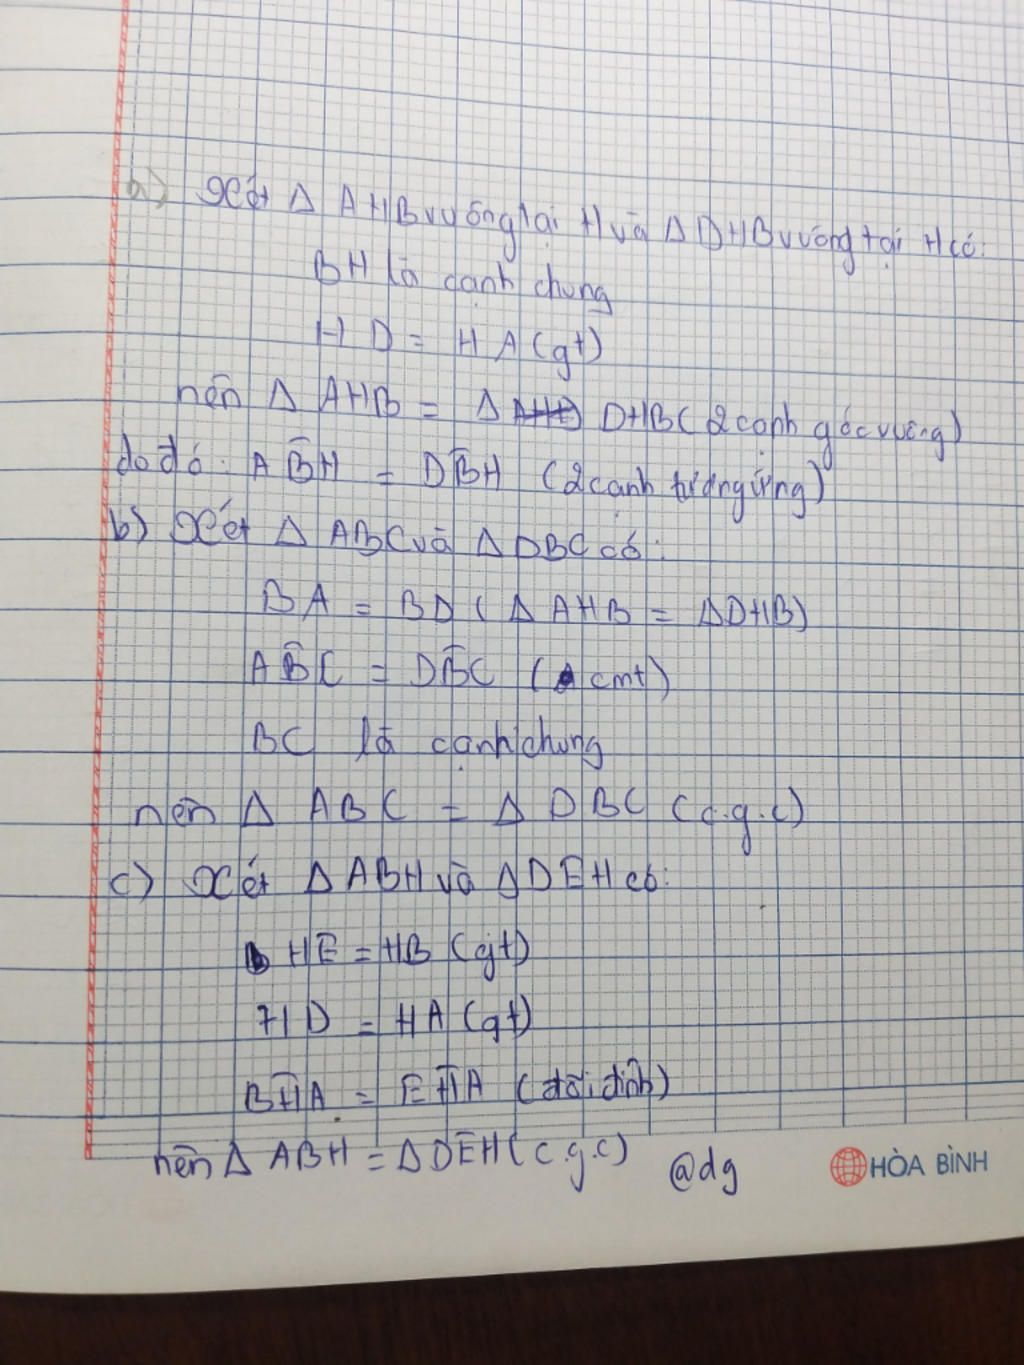 a) Xét Δ AHB vuông tại H và Δ DHB vuông tại H có:
BH là cạnh chung
HD = HA (gt)
nên Δ AHB = Δ DHB (2 cạnh góc vuông)
do đó: AB̂H = DB̂H (2 cạnh tương ứng)
b) Xét Δ ABC và Δ DBC có:
BA = BD (Δ AHB = ΔDHB)
AB̂C = DB̂C (cmt)
BC là cạnh chung
nên Δ ABC = Δ DBC (c.g.c)
c) Xét Δ ABH và Δ DEH có:
HE = HB (gt)
HD = HA (gt)
BĤA = EĤA (đối đỉnh)
nên Δ ABH = Δ DEH (c.g.c)
@dg
HÒA BÌNH